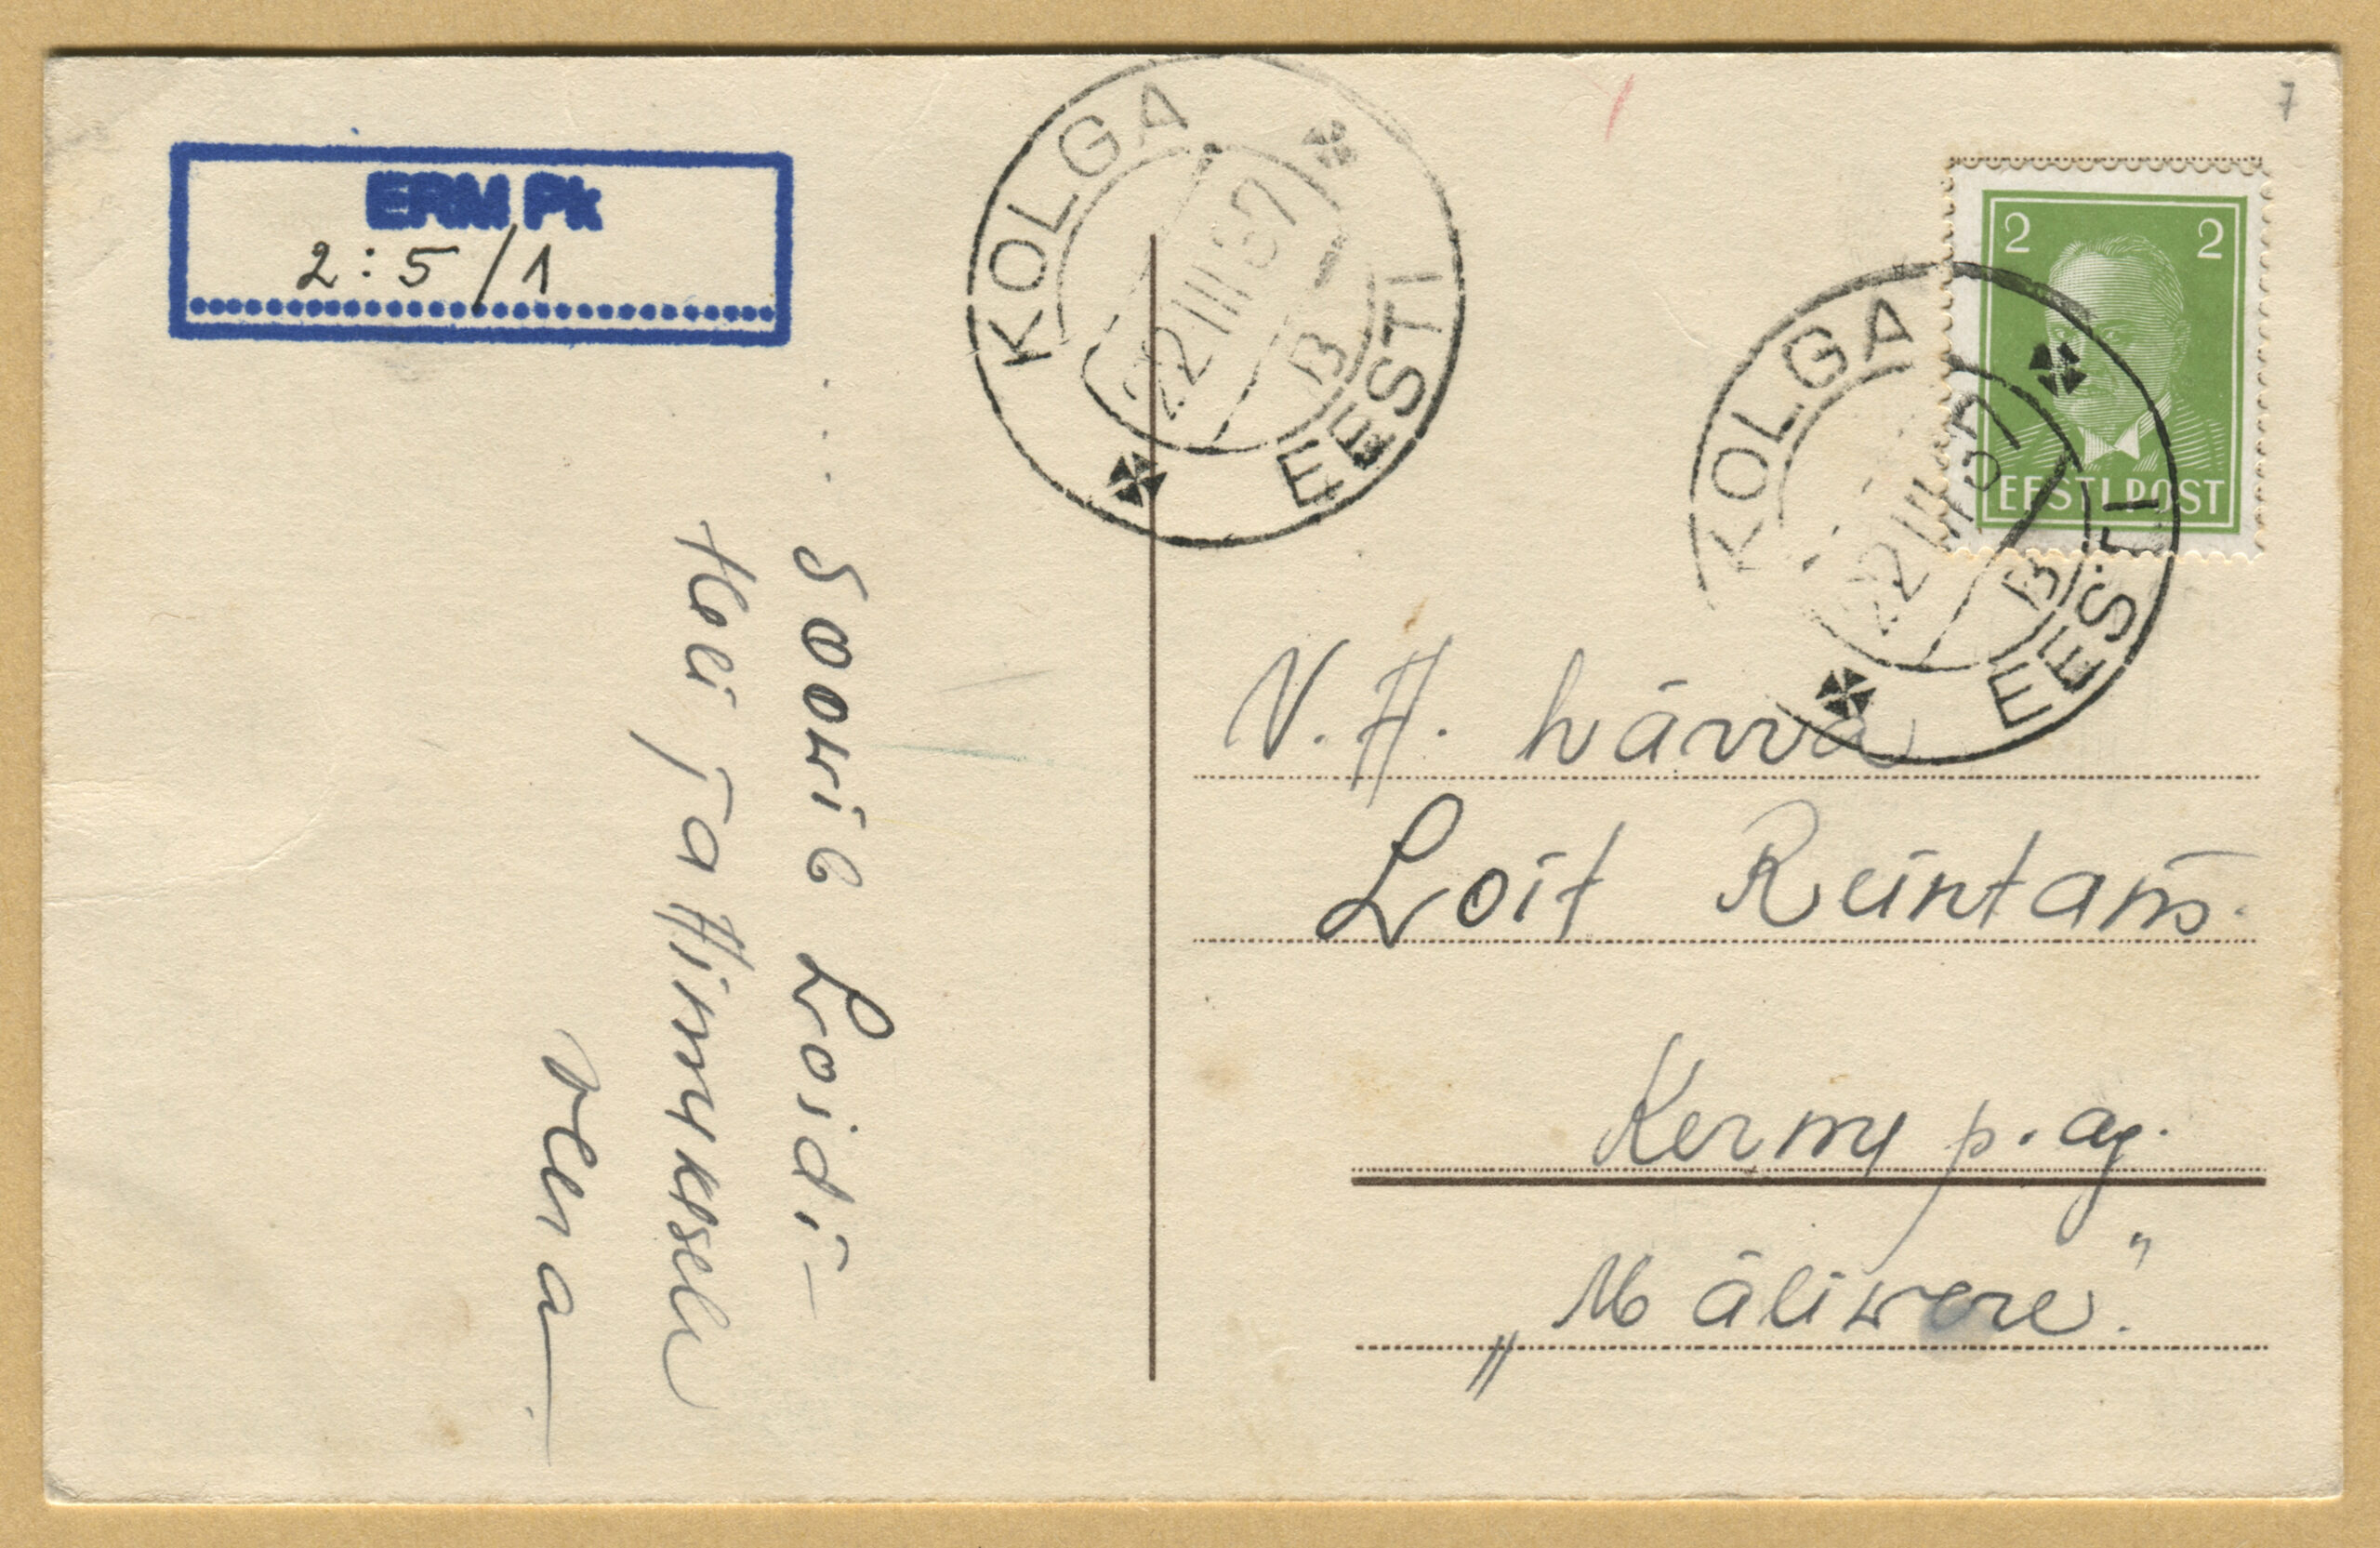 ERM Pk
2:5/1
KOLGA
22 III 37
B
EESTI
7
2 2
EESTI POST
KOLGA
22 III 37
B
EESTI
V. A. härra
Loit Reintam.
Kernu p. ag.
„Mäliwere."
.... Soovib Loidi-
Vena